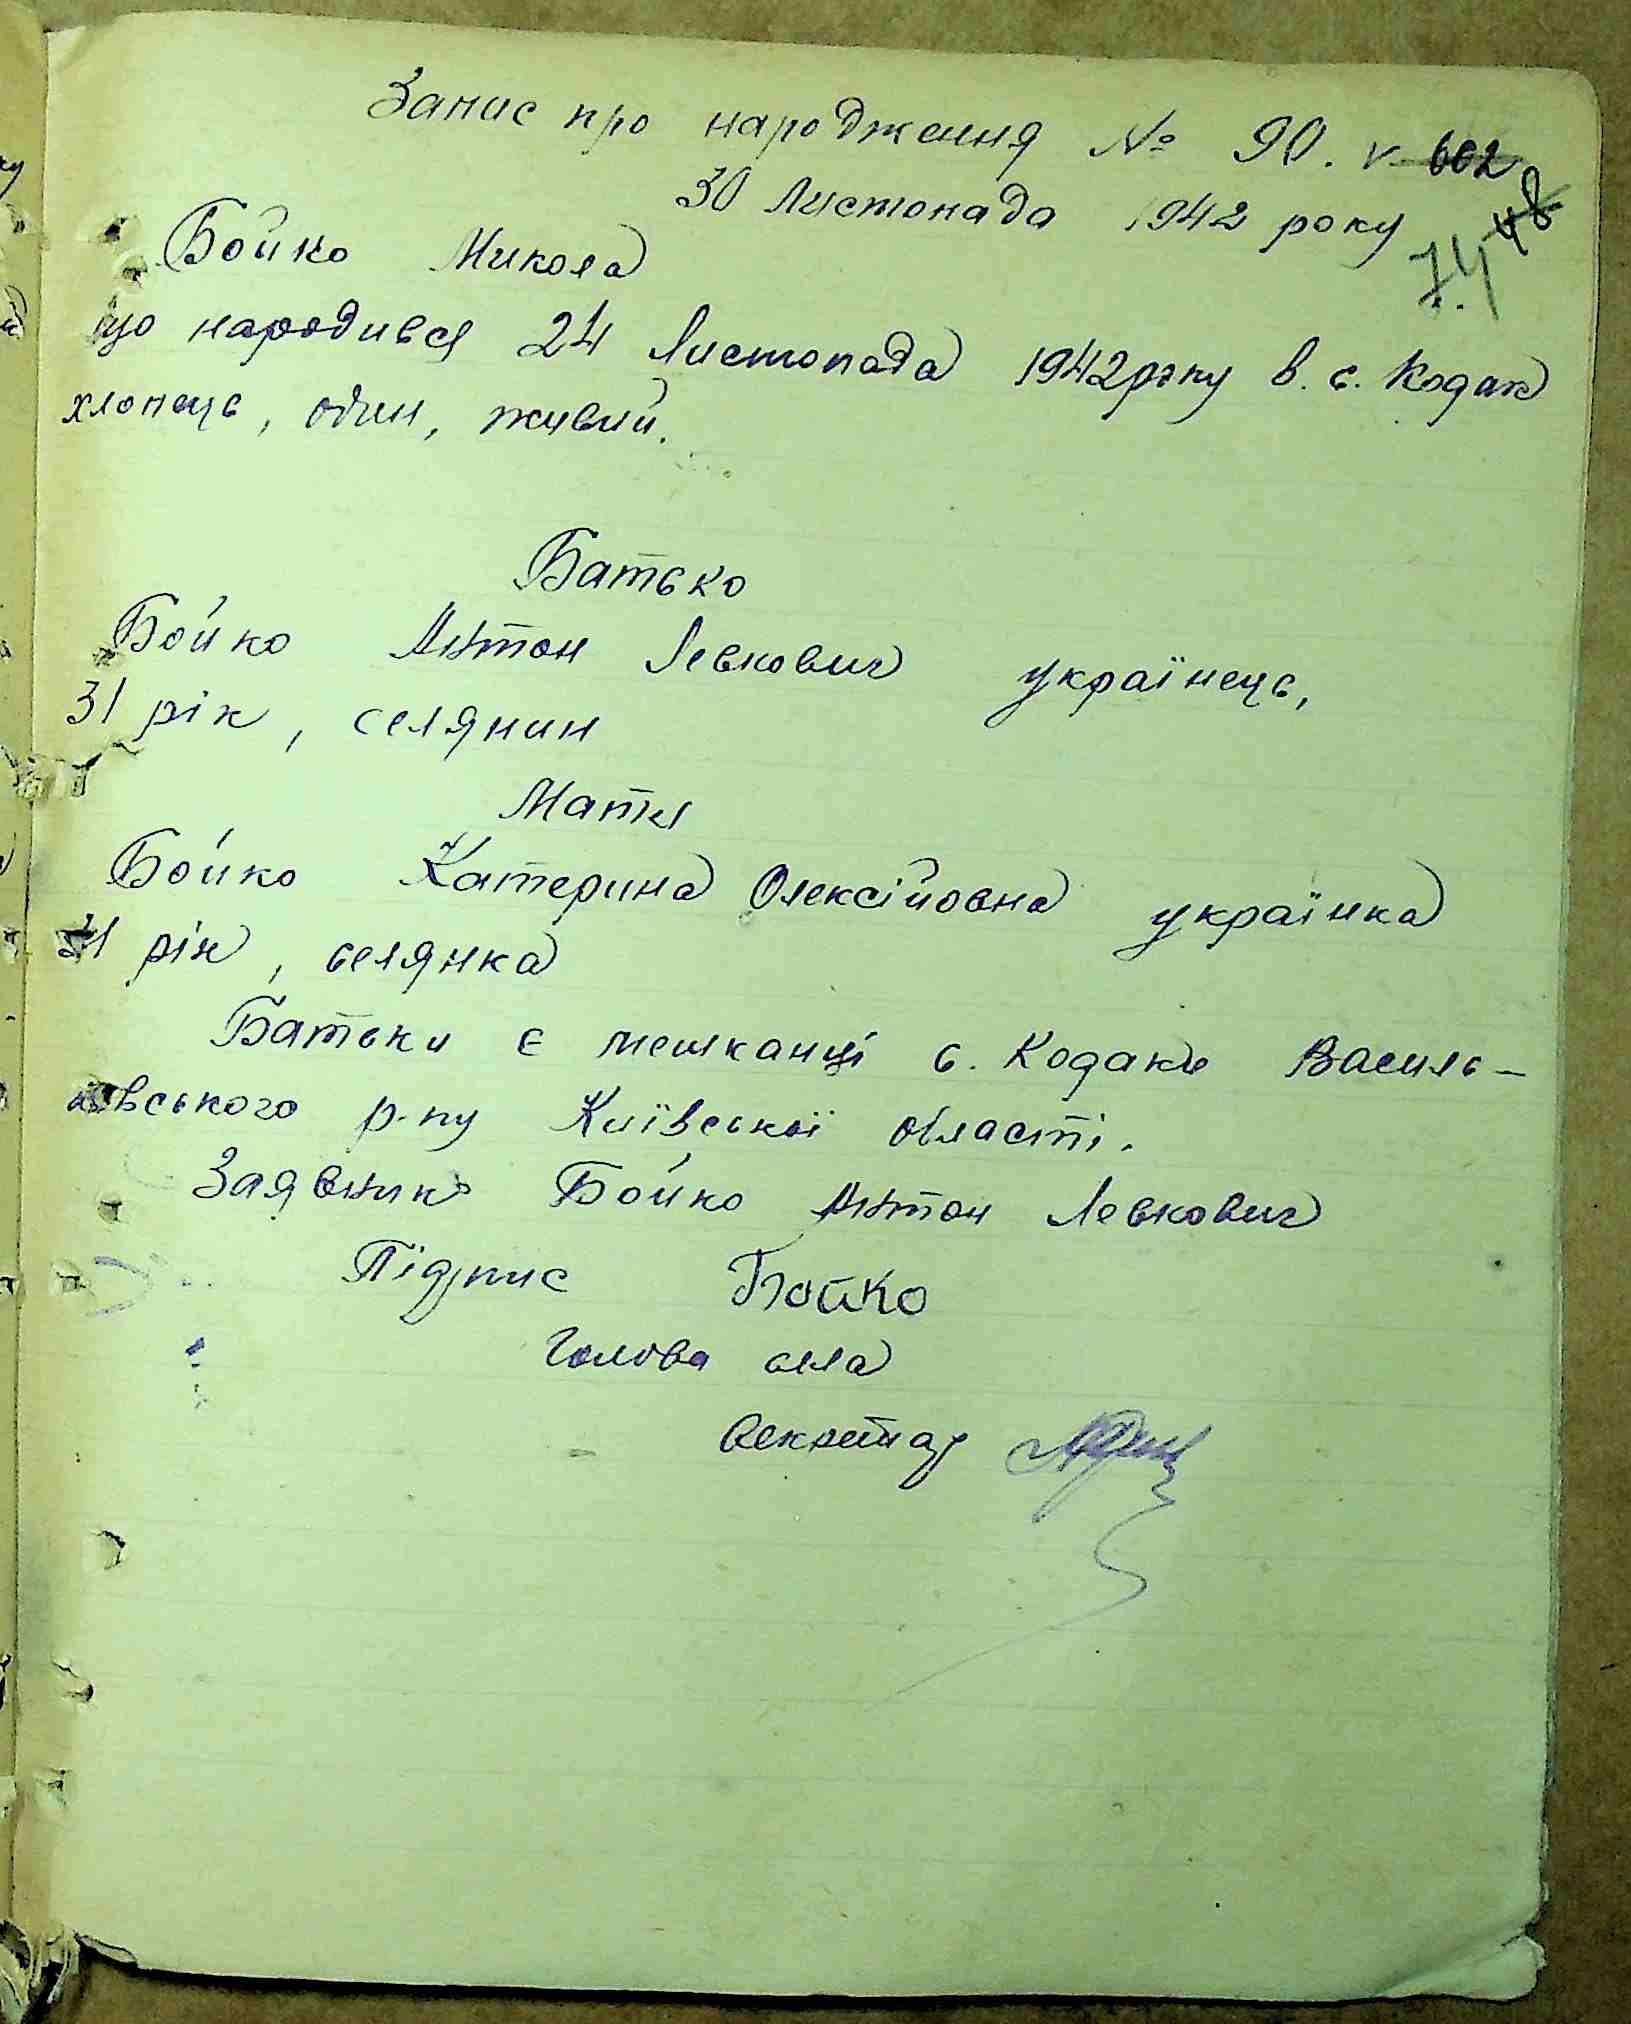 Запис про народження № 90. v 602
30 Листопада 1942 року 48
74
Бойко Микола
що народився 24 Листопада 1942 року в. с. Кодак
хлопець, один, живий.
Батько
Бойко Антон Левкович українець,
31 рік, селянин
Мати
Бойко Катерина Олексійовна українка
31 рік, селянка
Батьки є мешканці с. Кодаки Василь-
ківського р-ну Київської області.
Заявник Бойко Антон Левкович
Підпис Бойко
Голова села
Секретар